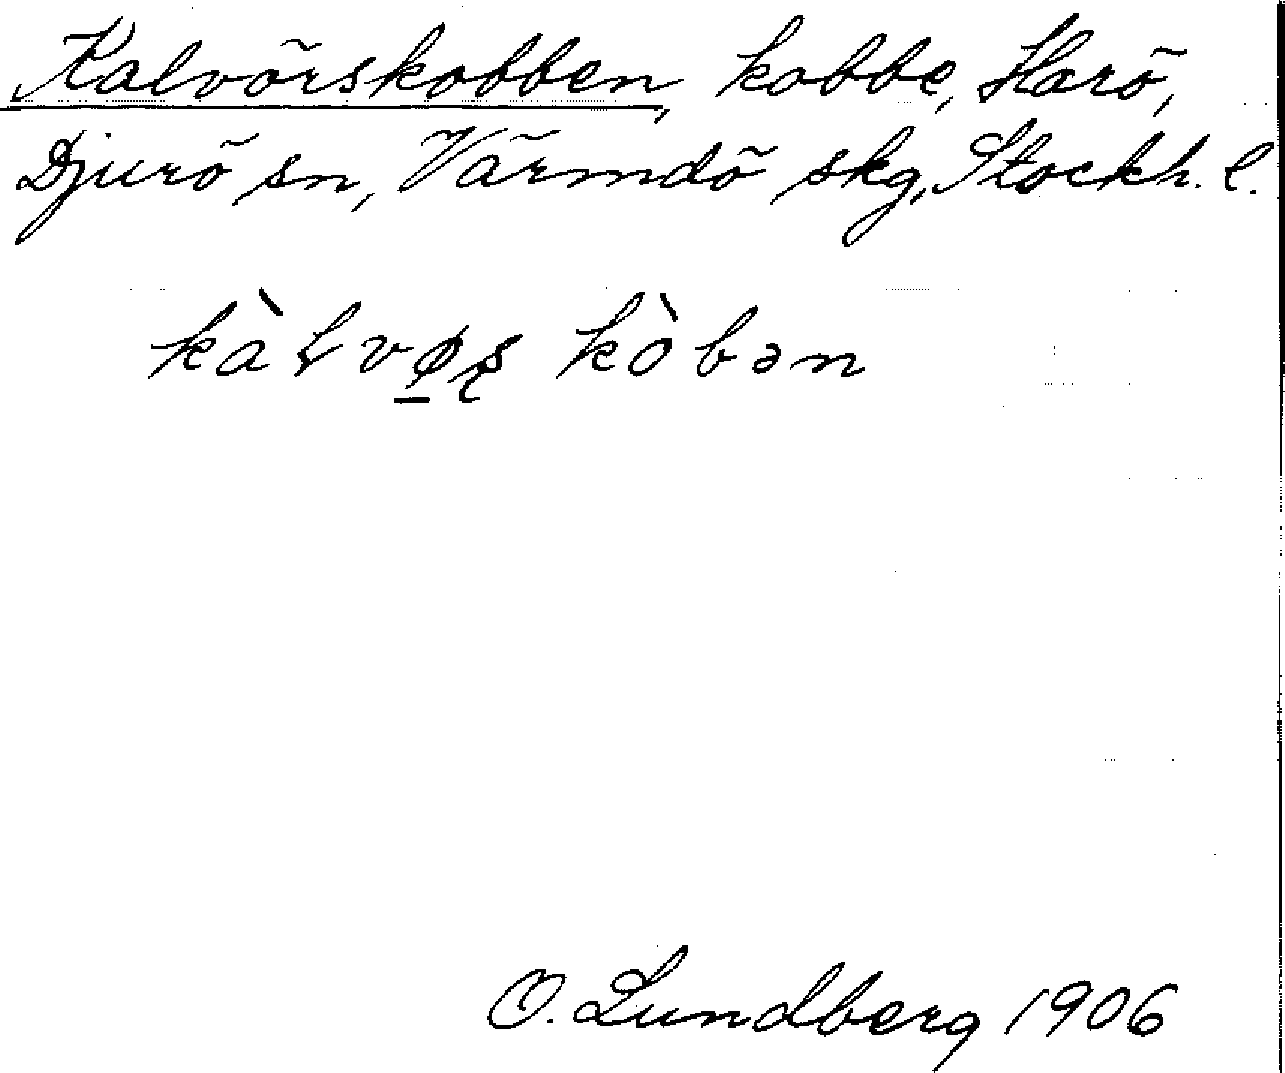 Kalvörskobben, kobbe, Harö,
Djurö sn, Värmdö skg, Stockh. l.
kàɫvø̠ʂ kòbən
O. Lundberg 1906